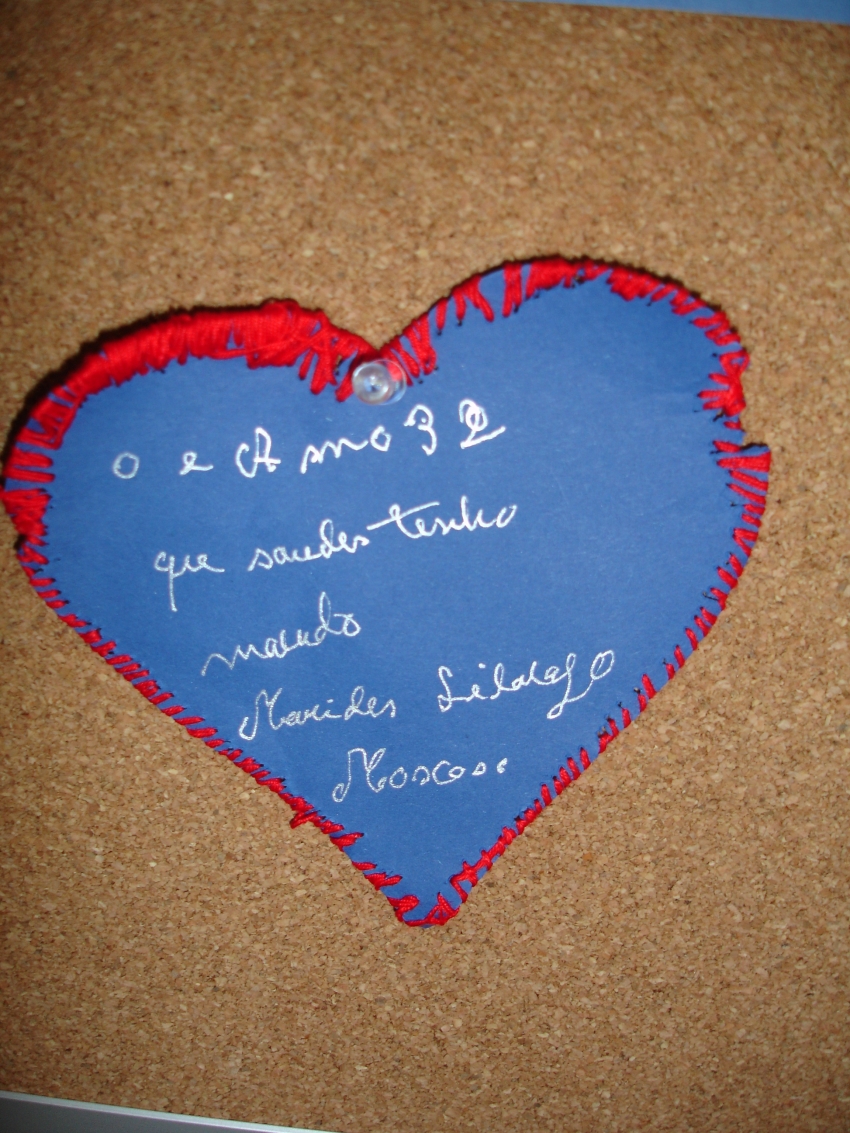 o e Amo 32
que saudes tenho
marido
Marides
Moscoso